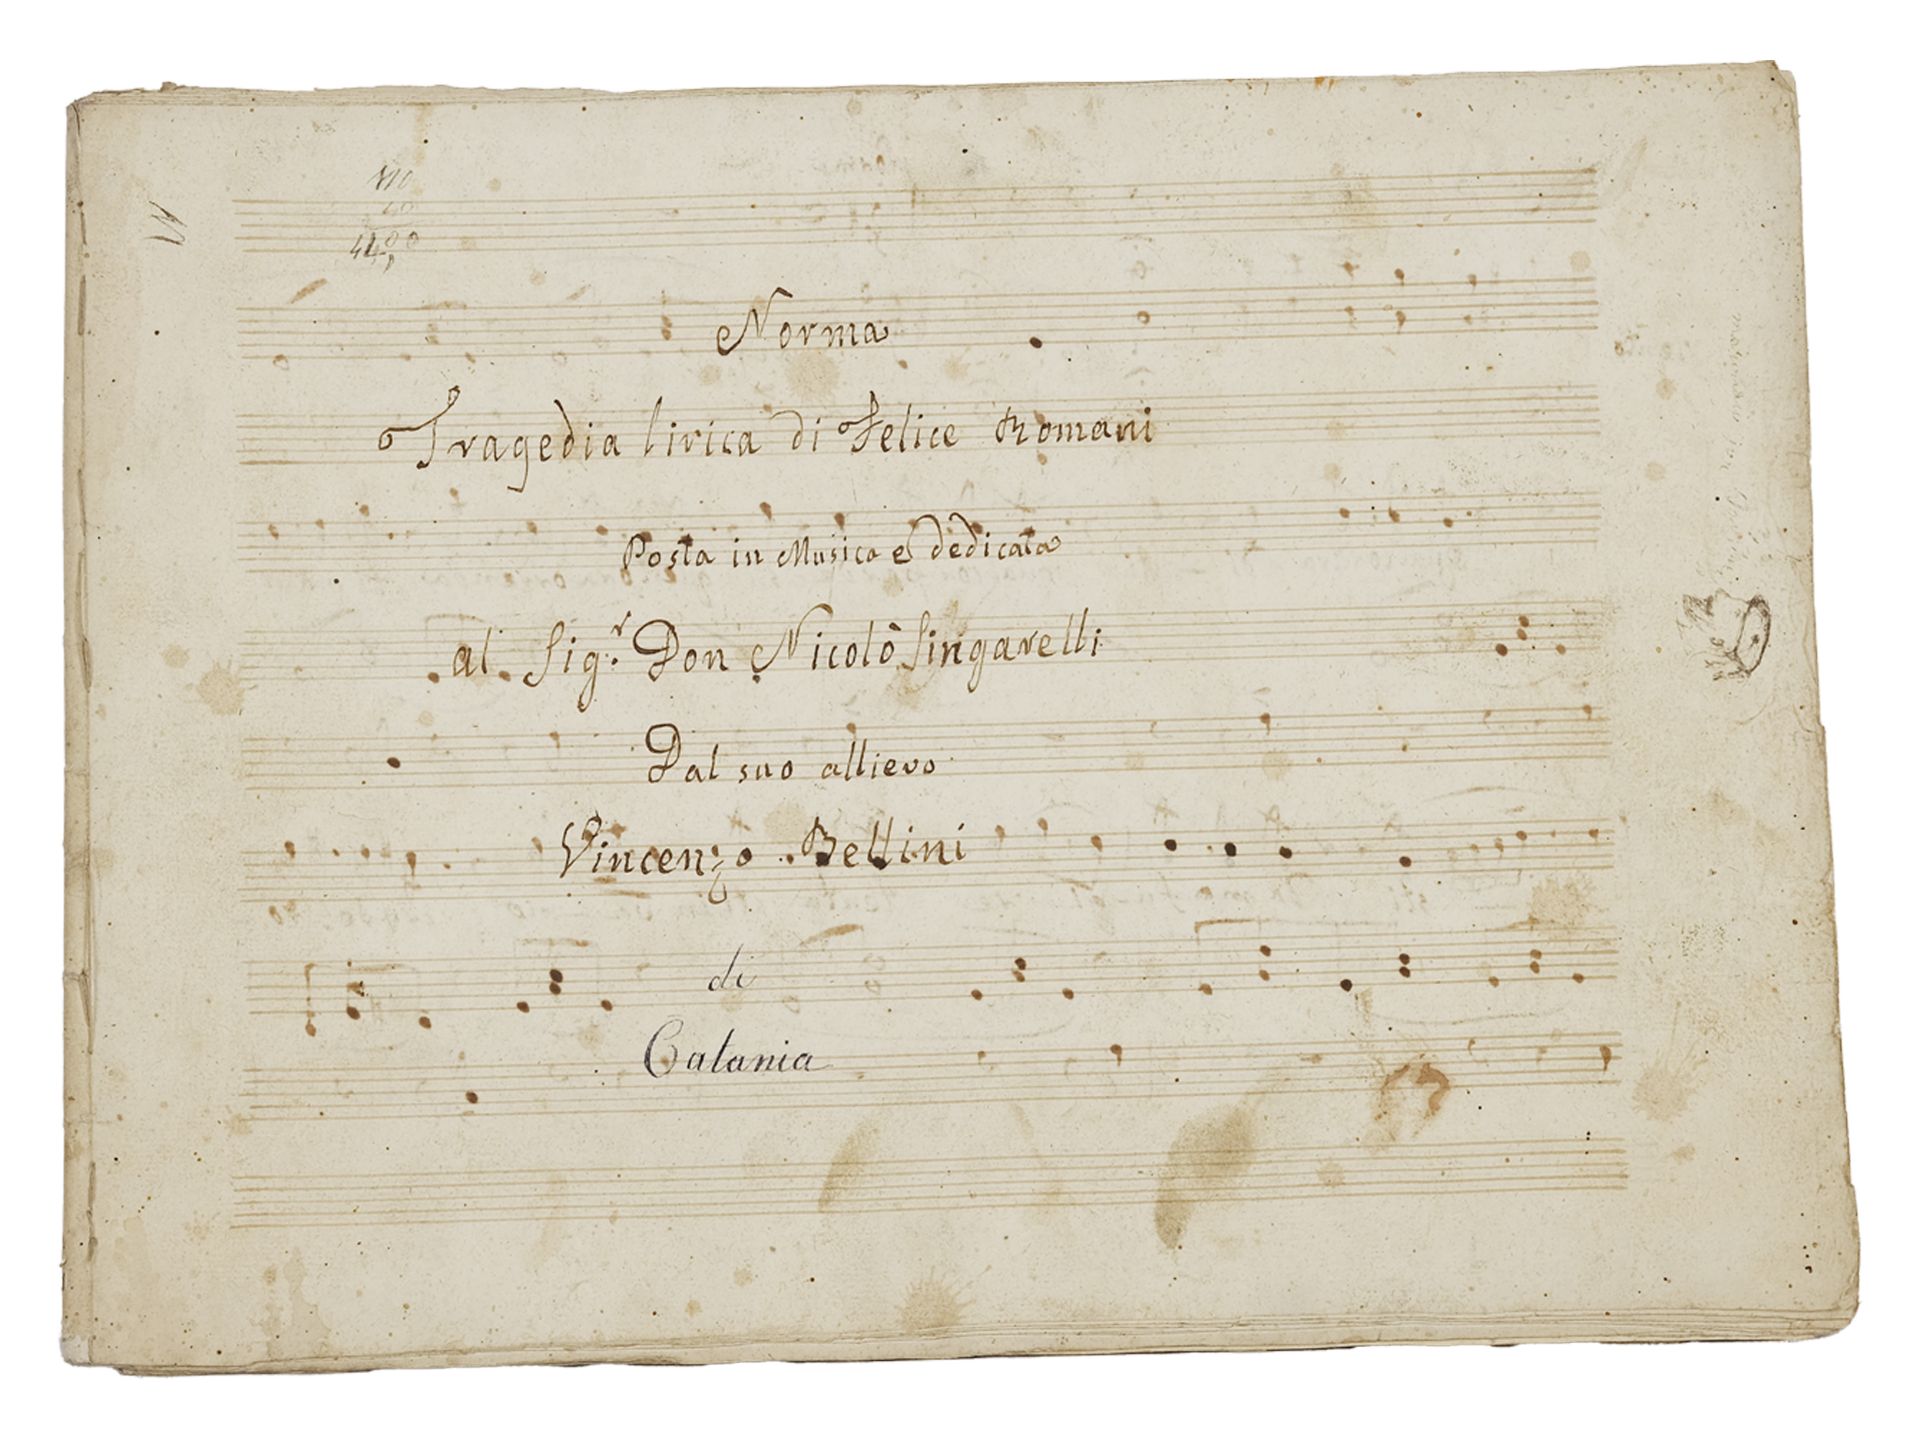 Norma
Tragedia lirica di Felice Romani
Posta in Musica e dedicata
al Sig.r Don Nicolò Singarelli
Dal suo allievo
Vincenzo Bellini
di
Catania